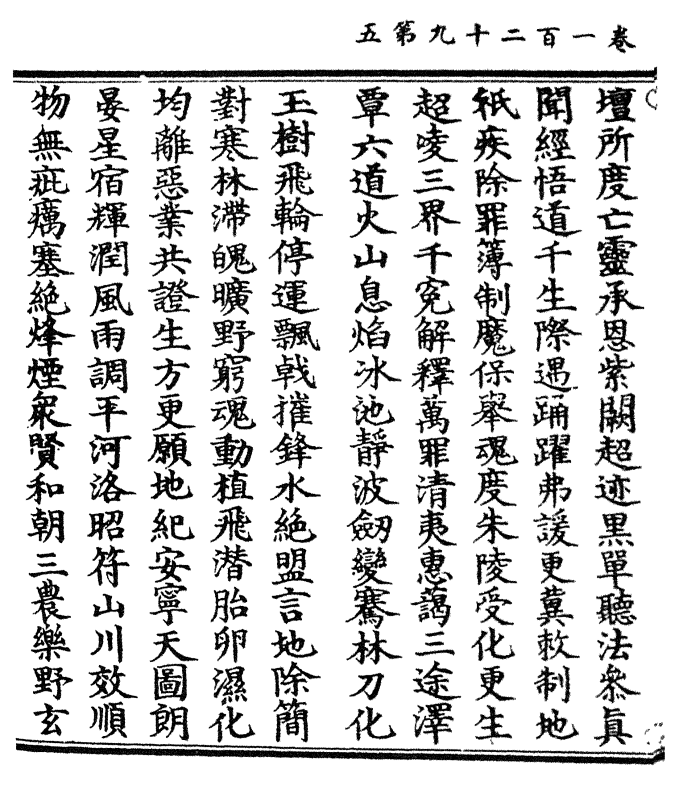 卷一百二十九第五
壇所度亡靈承恩紫闕超迹黑單聽法叅眞
聞經悟道千生際遇踊躍弗諼更冀敕制地
祇疾除罪簿制魔保舉魂度朱陵受化更生
超唆三界千寃解釋萬罪清夷惠藹三途澤
覃六道火山息焰冰池靜波劒變騫林刀化
玉樹飛輪停運飄戟摧鋒水絶盟言地除簡
對寒林滯魄曠野窮魂動植飛潜胎卵濕化
均離惡業共證生方更願地紀安寧天圖朗
晏星宿輝潤風雨調平河洛昭符山川效順
物無疵癘塞絶烽煙衆賢和朝三農樂野玄